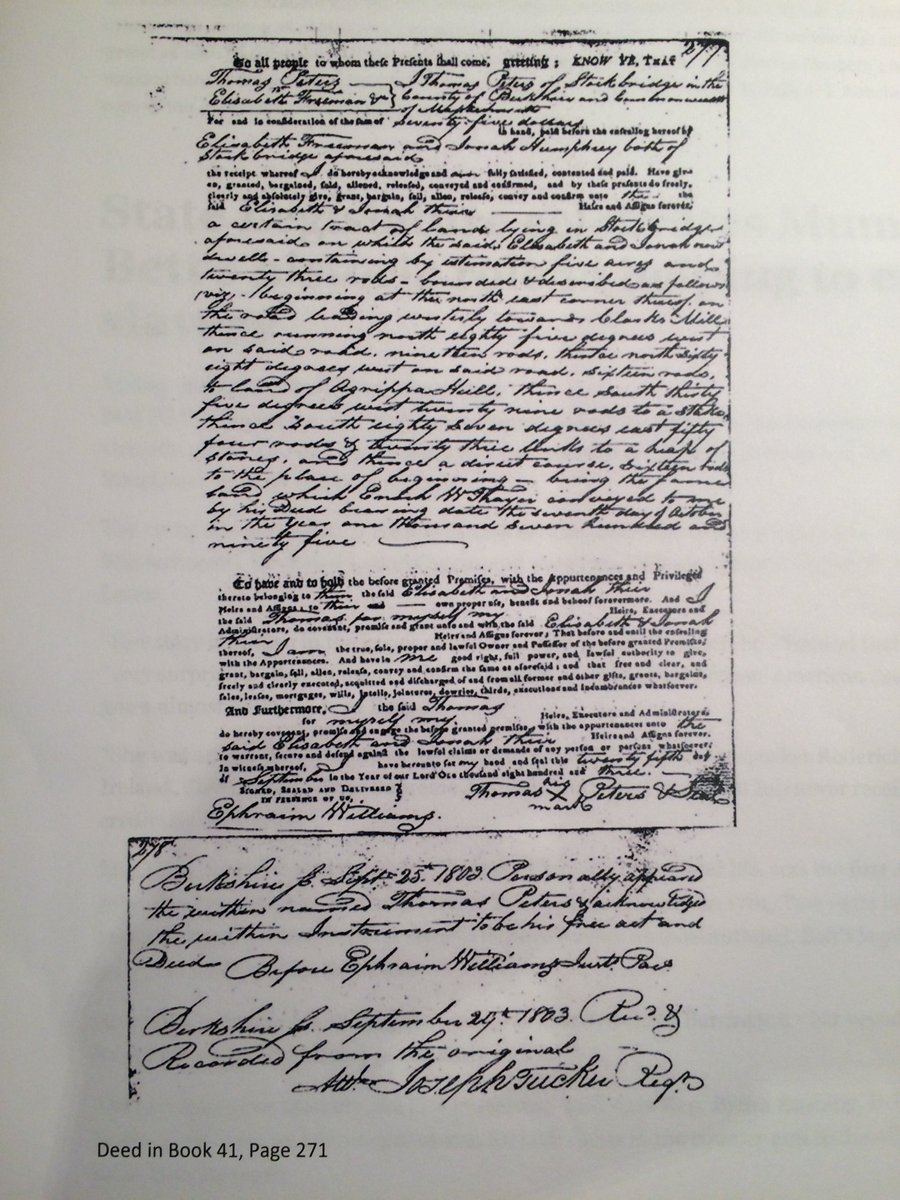 277
To all people to whom these Presents shall come, greeting; KNOW YE, THAT
Thomas Peters — I Thomas Peters of Stockbridge in the
to
Elisabeth Freeman &c } County of Berkshire and Commonwealth
of Massachusetts
For and in consideration of the sum of Seventy-five dollars
in hand, paid before the ensealing hereof by
Elisabeth Freeman and Jonah Humphrey both of
Stockbridge aforesaid
the receipt whereof I do hereby acknowledge and am fully satisfied, contented and paid. Have giv-
en, granted, bargained, sold, aliened, released, conveyed and confirmed, and by these presents do freely,
clearly and absolutely give, grant, bargain, sell, alien, release, convey and confirm unto the the
said Elisabeth & Jonah their — Heirs and Assigns forever,
a certain tract of land lying in Stockbridge
aforesaid on which the said Elisabeth and Jonah now
dwells - containing by estimation five acres and
twenty three rods - bounded & described as follows
viz, - beginning at the north east corner thereof on
the road leading westerly towards Clarks Mill
thence running north eighty five degrees west
on said road, nineteen rods, thence north sixty
eight degrees west on said road, sixteen rods,
to land of Agrippa Hull, thence South thirty
five degrees west twenty nine rods to a stake,
thence South eighty seven degrees east fifty
four rods & twenty three links to a heap of
stones, and thence a direct course, sixteen rods
to the place of beginning - being the same
land which Enoch W Thayer conveyed to me
by his Deed bearing date the seventh day of October
in the Year one thousand seven hundred and
ninety five
To have and to hold the before granted Premises, with the Appurtenances and Privileges
thereto belonging to them the said Elisabeth and Jonah their
Heirs and Assigns; to their — own proper use, benefit and behoof forevermore. And I
the said Thomas for myself my Heirs, Executors and
Administrators, do covenant, promise and grant unto and with the said Elisabeth & Jonah
their Heirs and Assigns forever; That before and until the ensealing
thereof, I am the true, sole, proper and lawful Owner and Possessor of the before granted Premises,
with the Appurtenances. And have in me good right, full power, and lawful authority to give,
grant, bargain, sell, alien, release, convey and confirm the same as aforesaid; and that free and clear, and
freely and clearly executed, acquitted and discharged of and from all former and other gifts, grants, bargains,
sales, leases, mortgages, wills, intails, jointures, dowries, thirds, executions and incumbrances whatsoever.
And Furthermore, I the said Thomas
for myself my Heirs, Executors and Administrators
do hereby covenant, promise and engage the before granted premises, with the appurtenances unto the
said Elisabeth and Jonah their Heirs and Assigns forever.
to warrant, secure and defend against the lawful claims or demands of any person or persons whatsoever.
In witness whereof, have hereunto set my hand and seal this twenty fifth day
of September in the Year of our Lord One thousand eight hundred and three.
SIGNED, SEALED AND DELIVERED }
IN PRESENCE OF US,
Thomas his X mark Peters & Seal
Ephraim Williams.
278
Berkshire ss. Sept. 25th 1803. Personally appeared
the within named Thomas Peters & acknowledged
the within Instrument to be his free act and
Deed Before Ephraim Williams Just. Pacs
Berkshire ss. September 29th 1803. Recd. &
Recorded from the original
Attr. Joseph Tucker Regr.
Deed in Book 41, Page 271